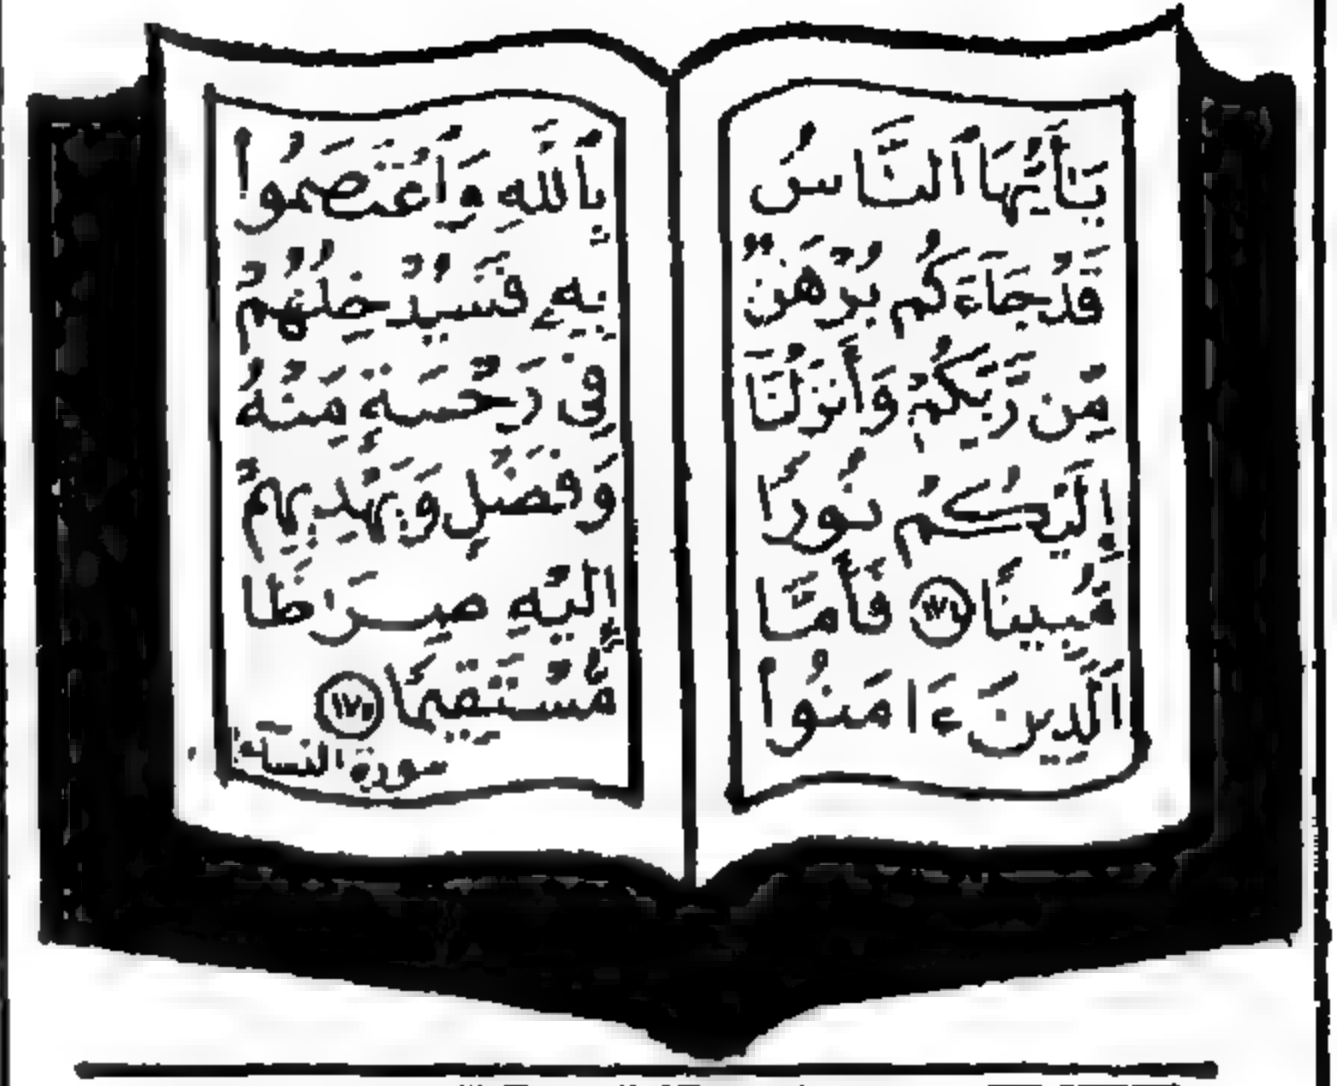 يَـٰٓأَيُّهَا ٱلنَّاسُ
قَدْ جَآءَكُم بُرْهَـٰنٌ
مِّن رَّبِّكُمْ وَأَنزَلْنَآ
إِلَيْكُمْ نُورًا
مُّبِينًا ١٧٤ فَأَمَّا
ٱلَّذِينَ ءَامَنُوا
بِٱللَّهِ وَٱعْتَصَمُوا
بِهِۦ فَسَيُدْخِلُهُمْ
فِى رَحْمَةٍ مِنْهُ
وَفَضْلٍ وَيَهْدِيهِمْ
إِلَيْهِ صِرَٰطًا
مُّسْتَقِيمًا ١٧٥
سورة النساء